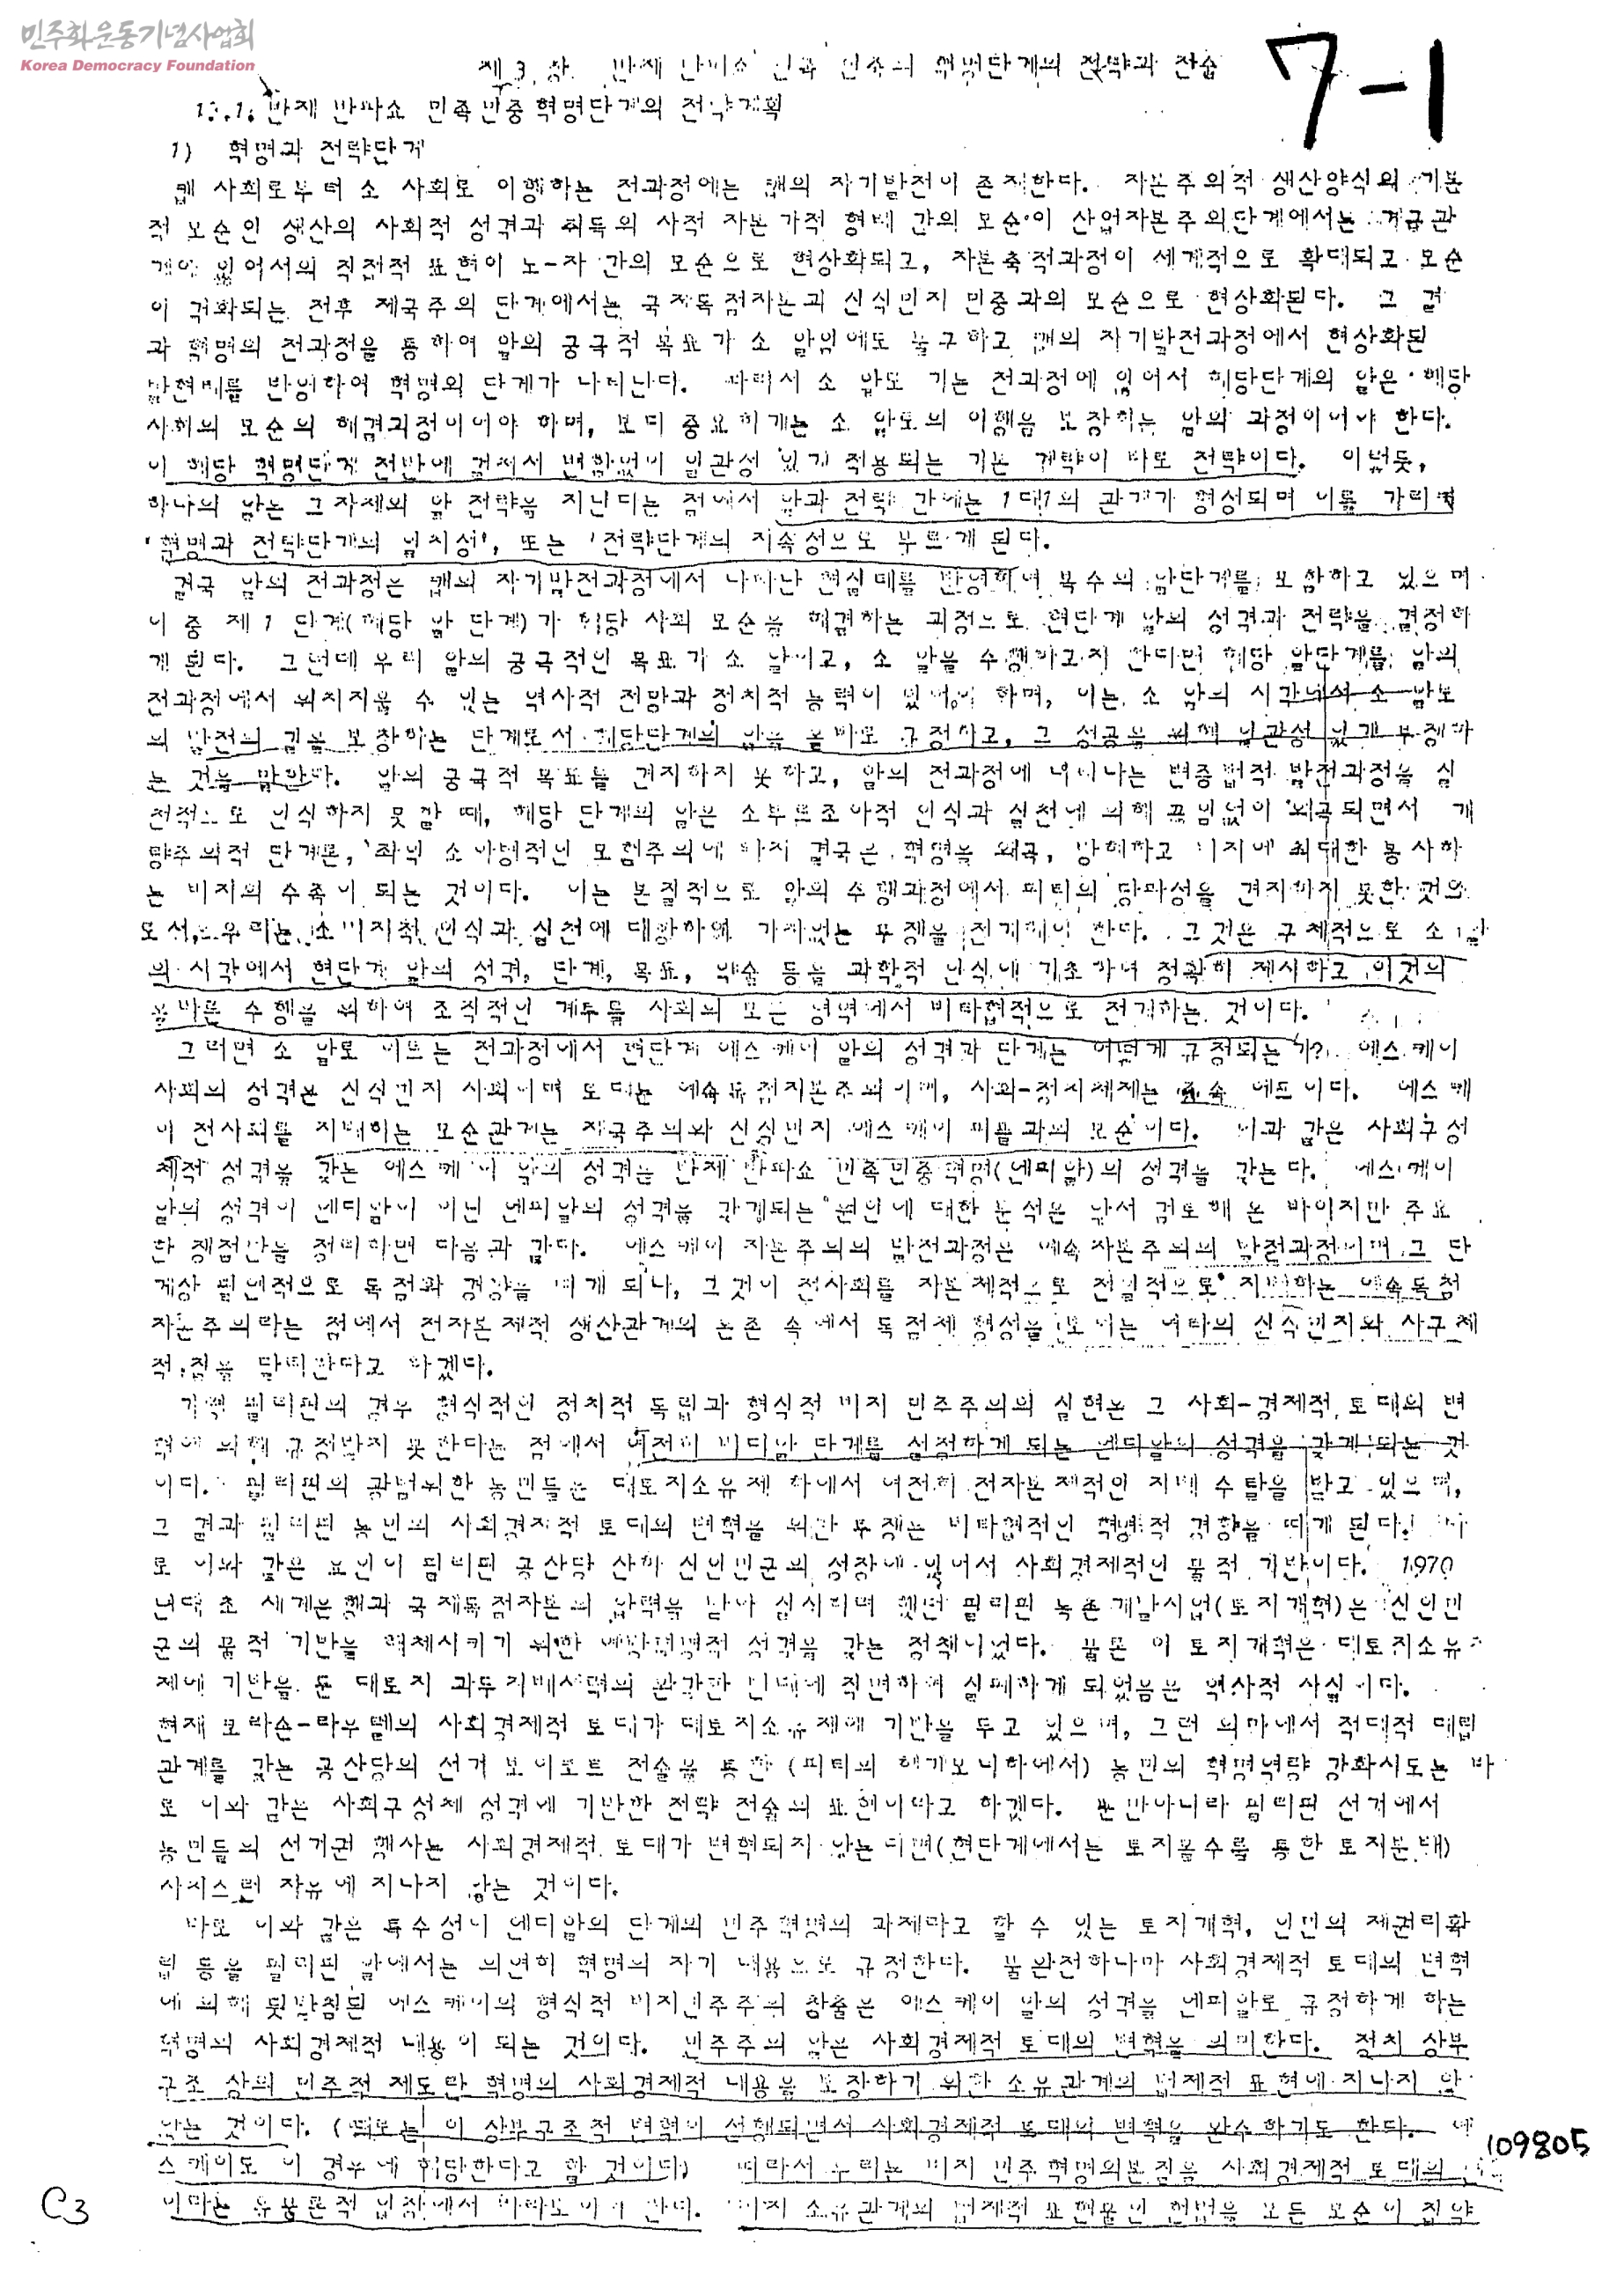 민주화운동기념사업회
Korea Democracy Foundation
7-1
제 3 장 반제 혁명단계의 전략과 전술
반제 반파쇼 민족민중혁명단계의 전략계획
1) 혁명과 전략단계
사회로부터 소 사회로 이행하는 전과정에는 자기발전이 존재한다. 자본주의적 생산양식의 기본
적 모순인 생산의 사회적 성격과 취득의 사적 자본가적 형태 간의 모순이 산업자본주의단계에서는 계급관
계에 있어서의 직접적 표현이 노-자 간의 모순으로 현상화되고, 자본축적과정이 세계적으로 확대되고 모순
이 격화되는 전후 제국주의 단계에서는 국제독점자본과 신식민지 민중과의 모순으로 현상화된다. 그 결
과 혁명의 전과정을 통하여 앎의 궁극적 목표가 소 앎임에도 불구하고 자기발전과정에서 현상화된
반영하여 혁명의 단계가 나타난다. 따라서 소 앎로 가는 전과정에 있어서 해당단계의 앎은 해당
사회의 모순의 해결과정이어야 하며, 보다 중요하게는 소 앎로의 이행을 보장하는 앎의 과정이어야 한다.
이 해당 혁명단계 전반에 걸쳐서 변함없이 일관성 있게 적용되는 기본 계략이 바로 전략이다. 이렇듯,
하나의 앎는 그 자체의 앎 전략을 지닌다는 점에서 앎과 전략 간에는 1대1의 관계가 형성되며 이를 가리켜
'혁명과 전략단계의 일치성', 또는 '전략단계의 지속성으로 부르게 된다.
결국 앎의 전과정은 자기발전과정에서 나타난 현실태를 반영하여 복수의 앎단계를 포함하고 있으며
이 중 제1 단계(해당 앎 단계)가 해당 사회 모순을 해결하는 과정으로 현단계 앎의 성격과 전략을 결정하
게 된다. 그런데 우리 앎의 궁극적인 목표가 소 앎이고, 소 앎을 수행하고자 한다면 해당 앎단계를 앎의
전과정에서 위치지울 수 있는 역사적 전망과 정치적 능력이 있어야 하며, 이는 소 앎의 시각에서 소 앎로
의 발전의 길을 보장하는 단계로서 해당단계의 앎을 올바로 규정하고, 그 성공을 위해 일관성 있게 투쟁하
는 것을 말한다. 앎의 궁극적 목표를 견지하지 못하고, 앎의 전과정에 나타나는 변증법적 발전과정을 실
천적으로 인식하지 못할 때, 해당 단계의 앎은 소부르조아적 인식과 실천에 의해 끊임없이 왜곡되면서 개
량주의적 단계론, 좌익 소아병적인 모험주의에 빠져 결국은 혁명을 왜곡, 방해하고 비지에 최대한 봉사하
는 비지의 수족이 되는 것이다. 이는 본질적으로 앎의 수행과정에서 피티의 당파성을 견지하지 못한 것으
로서, 우리는 소비지적 인식과 실천에 대항하여 가차없는 투쟁을 전개해야 한다. 그것은 구체적으로 소 앎
의 시각에서 현단계 앎의 성격, 단계, 목표, 약술 등을 과학적 인식에 기초하여 정확히 제시하고 이것의
올바른 수행을 위하여 조직적인 계투를 사회의 모든 영역에서 비타협적으로 전개하는 것이다.
그러면 소 앎로 이르는 전과정에서 현단계 에스케이 앎의 성격과 단계는 어떻게 규정되는가? 에스케이
사회의 성격은 신식민지 사회이며 토대는 예속독점자본주의이며, 사회-정치체제는 종속 이다. 에스케
이 전사회를 지배하는 모순관계는 제국주의와 신식민지 에스케이 피플과의 모순이다. 이과 같은 사회구성
체적 성격을 갖는 에스케이 앎의 성격은 반제 반파쇼 민족민중혁명(엔피앎)의 성격을 갖는다. 에스케이
앎의 성격이 엔디앎이 아닌 엔피앎의 성격을 갖게되는 원인에 대한 분석은 앞서 검토해 온 바이지만 주요
한 쟁점만을 정리하면 다음과 같다. 에스케이 자본주의의 발전과정은 예속자본주의의 발전과정이며 그 단
계상 필연적으로 독점화 경향을 띠게 되나, 그것이 전사회를 자본제적으로 전일적으로 지배하는 예속독점
자본주의라는 점에서 전자본제적 생산관계의 온존 속에서 독점제 형성을 보이는 여타의 신식민지와 사구체
적 점을 달리한다고 하겠다.
가령 필리핀의 경우 형식적인 정치적 독립과 형식적 비지 민주주의의 실현은 그 사회-경제적 토대의 변
혁에 의해 규정받지 못한다는 점에서 여전히 비디앎 단계를 설정하게 되는 엔디앎의 성격을 갖게 되는 것
이다. 필리핀의 광범위한 농민들은 대토지소유제 하에서 여전히 전자본제적인 지배 수탈을 받고 있으며,
그 결과 필리핀 농민의 사회경제적 토대의 변혁을 위한 투쟁은 비타협적인 혁명적 경향을 띠게 된다. 바
로 이와 같은 요인이 필리핀 공산당 산하 신인민군의 성장에 있어서 사회경제적인 물적 기반이다. 1970
년대 초 세계은행과 국제독점자본의 압력을 받아 실시하려 했던 필리핀 농촌개발사업(토지개혁)은 신인민
군의 물적 기반을 해체시키기 위한 예방혁명적 성격을 갖는 정책이었다. 물론 이 토지개혁은 대토지소유
제에 기반을 둔 대토지 과두지배세력의 완강한 반대에 직면하여 실패하게 되었음은 역사적 사실이다.
현재 모라손-라우렐의 사회경제적 토대가 대토지소유제에 기반을 두고 있으며, 그런 의미에서 적대적 대립
관계를 갖는 공산당의 선거 보이코트 전술을 통한 (피티의 헤게모니하에서) 농민의 혁명역량 강화시도는 바
로 이와 같은 사회구성체 성격에 기반한 전략 전술의 표현이라고 하겠다. 뿐만아니라 필리핀 선거에서
농민들의 선거권 행사는 사회경제적 토대가 변혁되지 않는다면(현단계에서는 토지몰수를 통한 토지분배)
사치스런 자유에 지나지 않는 것이다.
바로 이와 같은 특수성이 엔디앎의 단계의 민주혁명의 과제라고 할 수 있는 토지개혁, 인민의 제권리확
립 등을 필리핀 앎에서는 의연히 혁명의 자기 내용으로 규정한다. 불완전하나마 사회경제적 토대의 변혁
에 의해 뒷받침된 에스케이의 형식적 비지민주주의 창출은 에스케이 앎의 성격을 엔피앎로 규정하게 하는
혁명의 사회경제적 내용이 되는 것이다. 민주주의 앎은 사회경제적 토대의 변혁을 의미한다. 정치 상부
구조 상의 민주적 제도란 혁명의 사회경제적 내용을 보장하기 위한 소유관계의 법제적 표현에 지나지 않
않는 것이다. (때로는 이 상부구조적 변혁이 선행되면서 사회경제적 토대의 변혁을 완수하기도 한다. 에
스케이도 이 경우에 해당한다고 할 것이다) 따라서 우리는 비지 민주혁명의본질을 사회경제적 토대의
이라는 유물론적 입장에서 바라보아야 한다. 비지 소유관계의 법제적 표현물인 헌법을 모든 모순이 집약
109805
C3